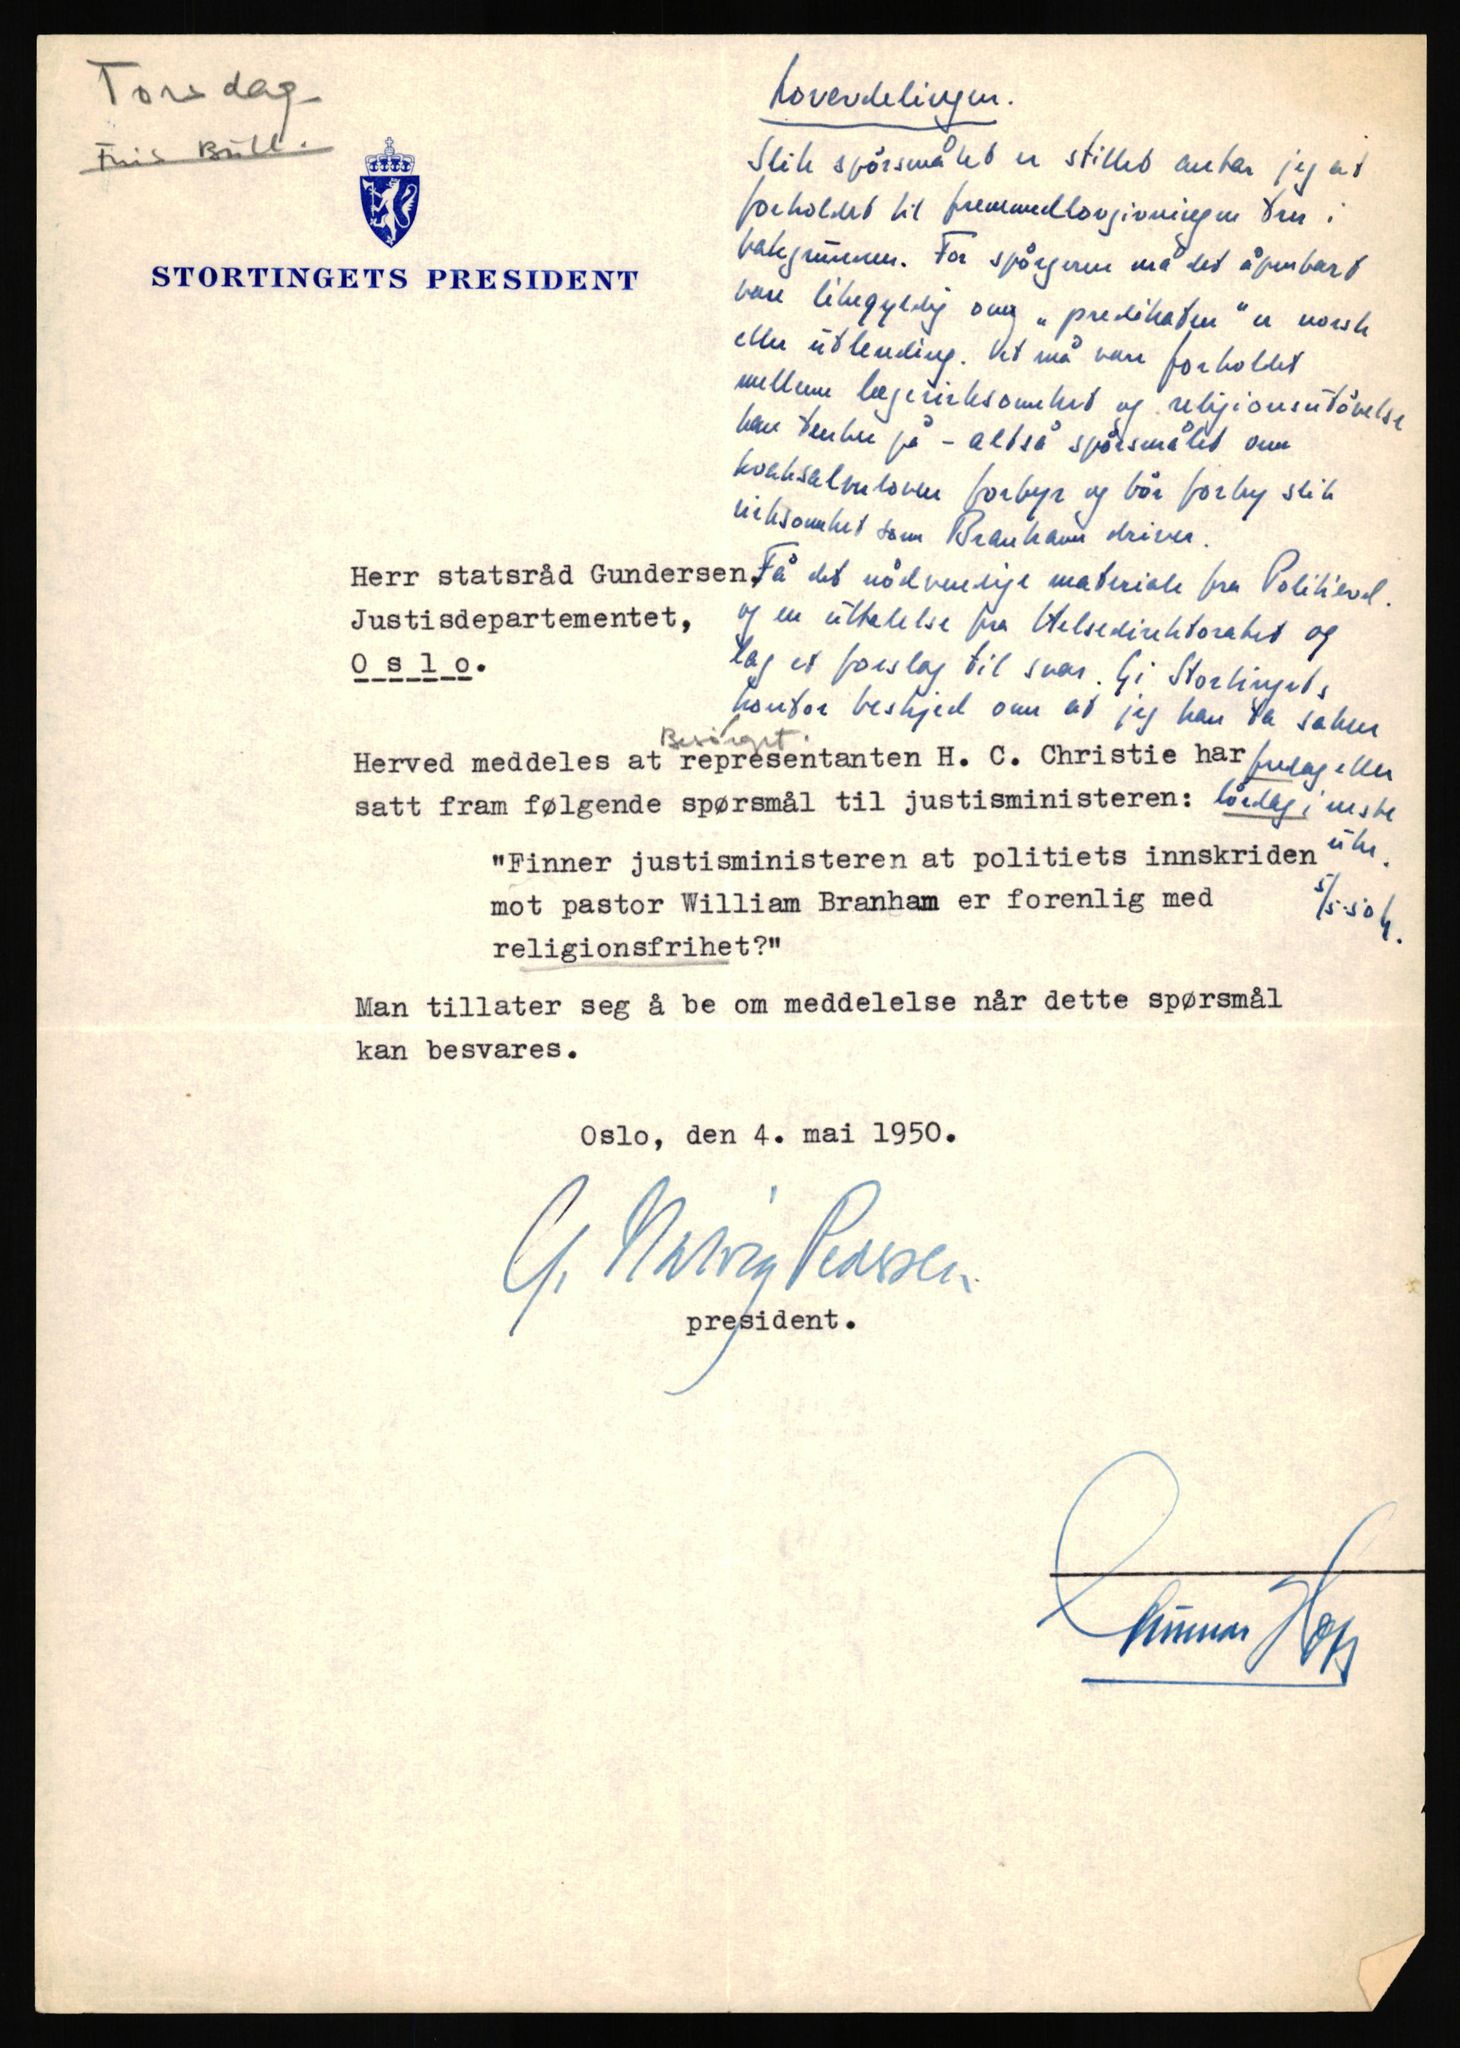 Torsdag
Lovavdelingen.
Slik spörsmålet er stillet antar jeg at
forholdet til fremmedlovgivningen trer i
bakgrunnen. For spörgeren må det åpenbart
være likegyldig om „predikaten" er norsk
eller utlending. Det må være forholdet
mellem lægevirksomhet og religionsutövelse
han tenker på – altså spörsmålet om
kvaksalverloven forbyr og bör forby slik
virksomhet som Branham driver.
Få det nödvendige materiale fra Politiavd.
og en uttalelse fra Helsedirektoratet og
lag et forslag til svar. Gi Stortingets
kontor beskjed om at jeg kan ta saken
fredag eller
lördag i neste
uke.
5/5-50 G.
STORTINGETS PRESIDENT
Herr statsråd Gundersen,
Justisdepartementet,
O s l o.
Besörget.
Herved meddeles at representanten H. C. Christie har
satt fram følgende spørsmål til justisministeren:
"Finner justisministeren at politiets innskriden
mot pastor William Branham er forenlig med
religionsfrihet?"
Man tillater seg å be om meddelelse når dette spørsmål
kan besvares.
Oslo, den 4. mai 1950.
G. Natvig Pedersen.
president.
Gunnar